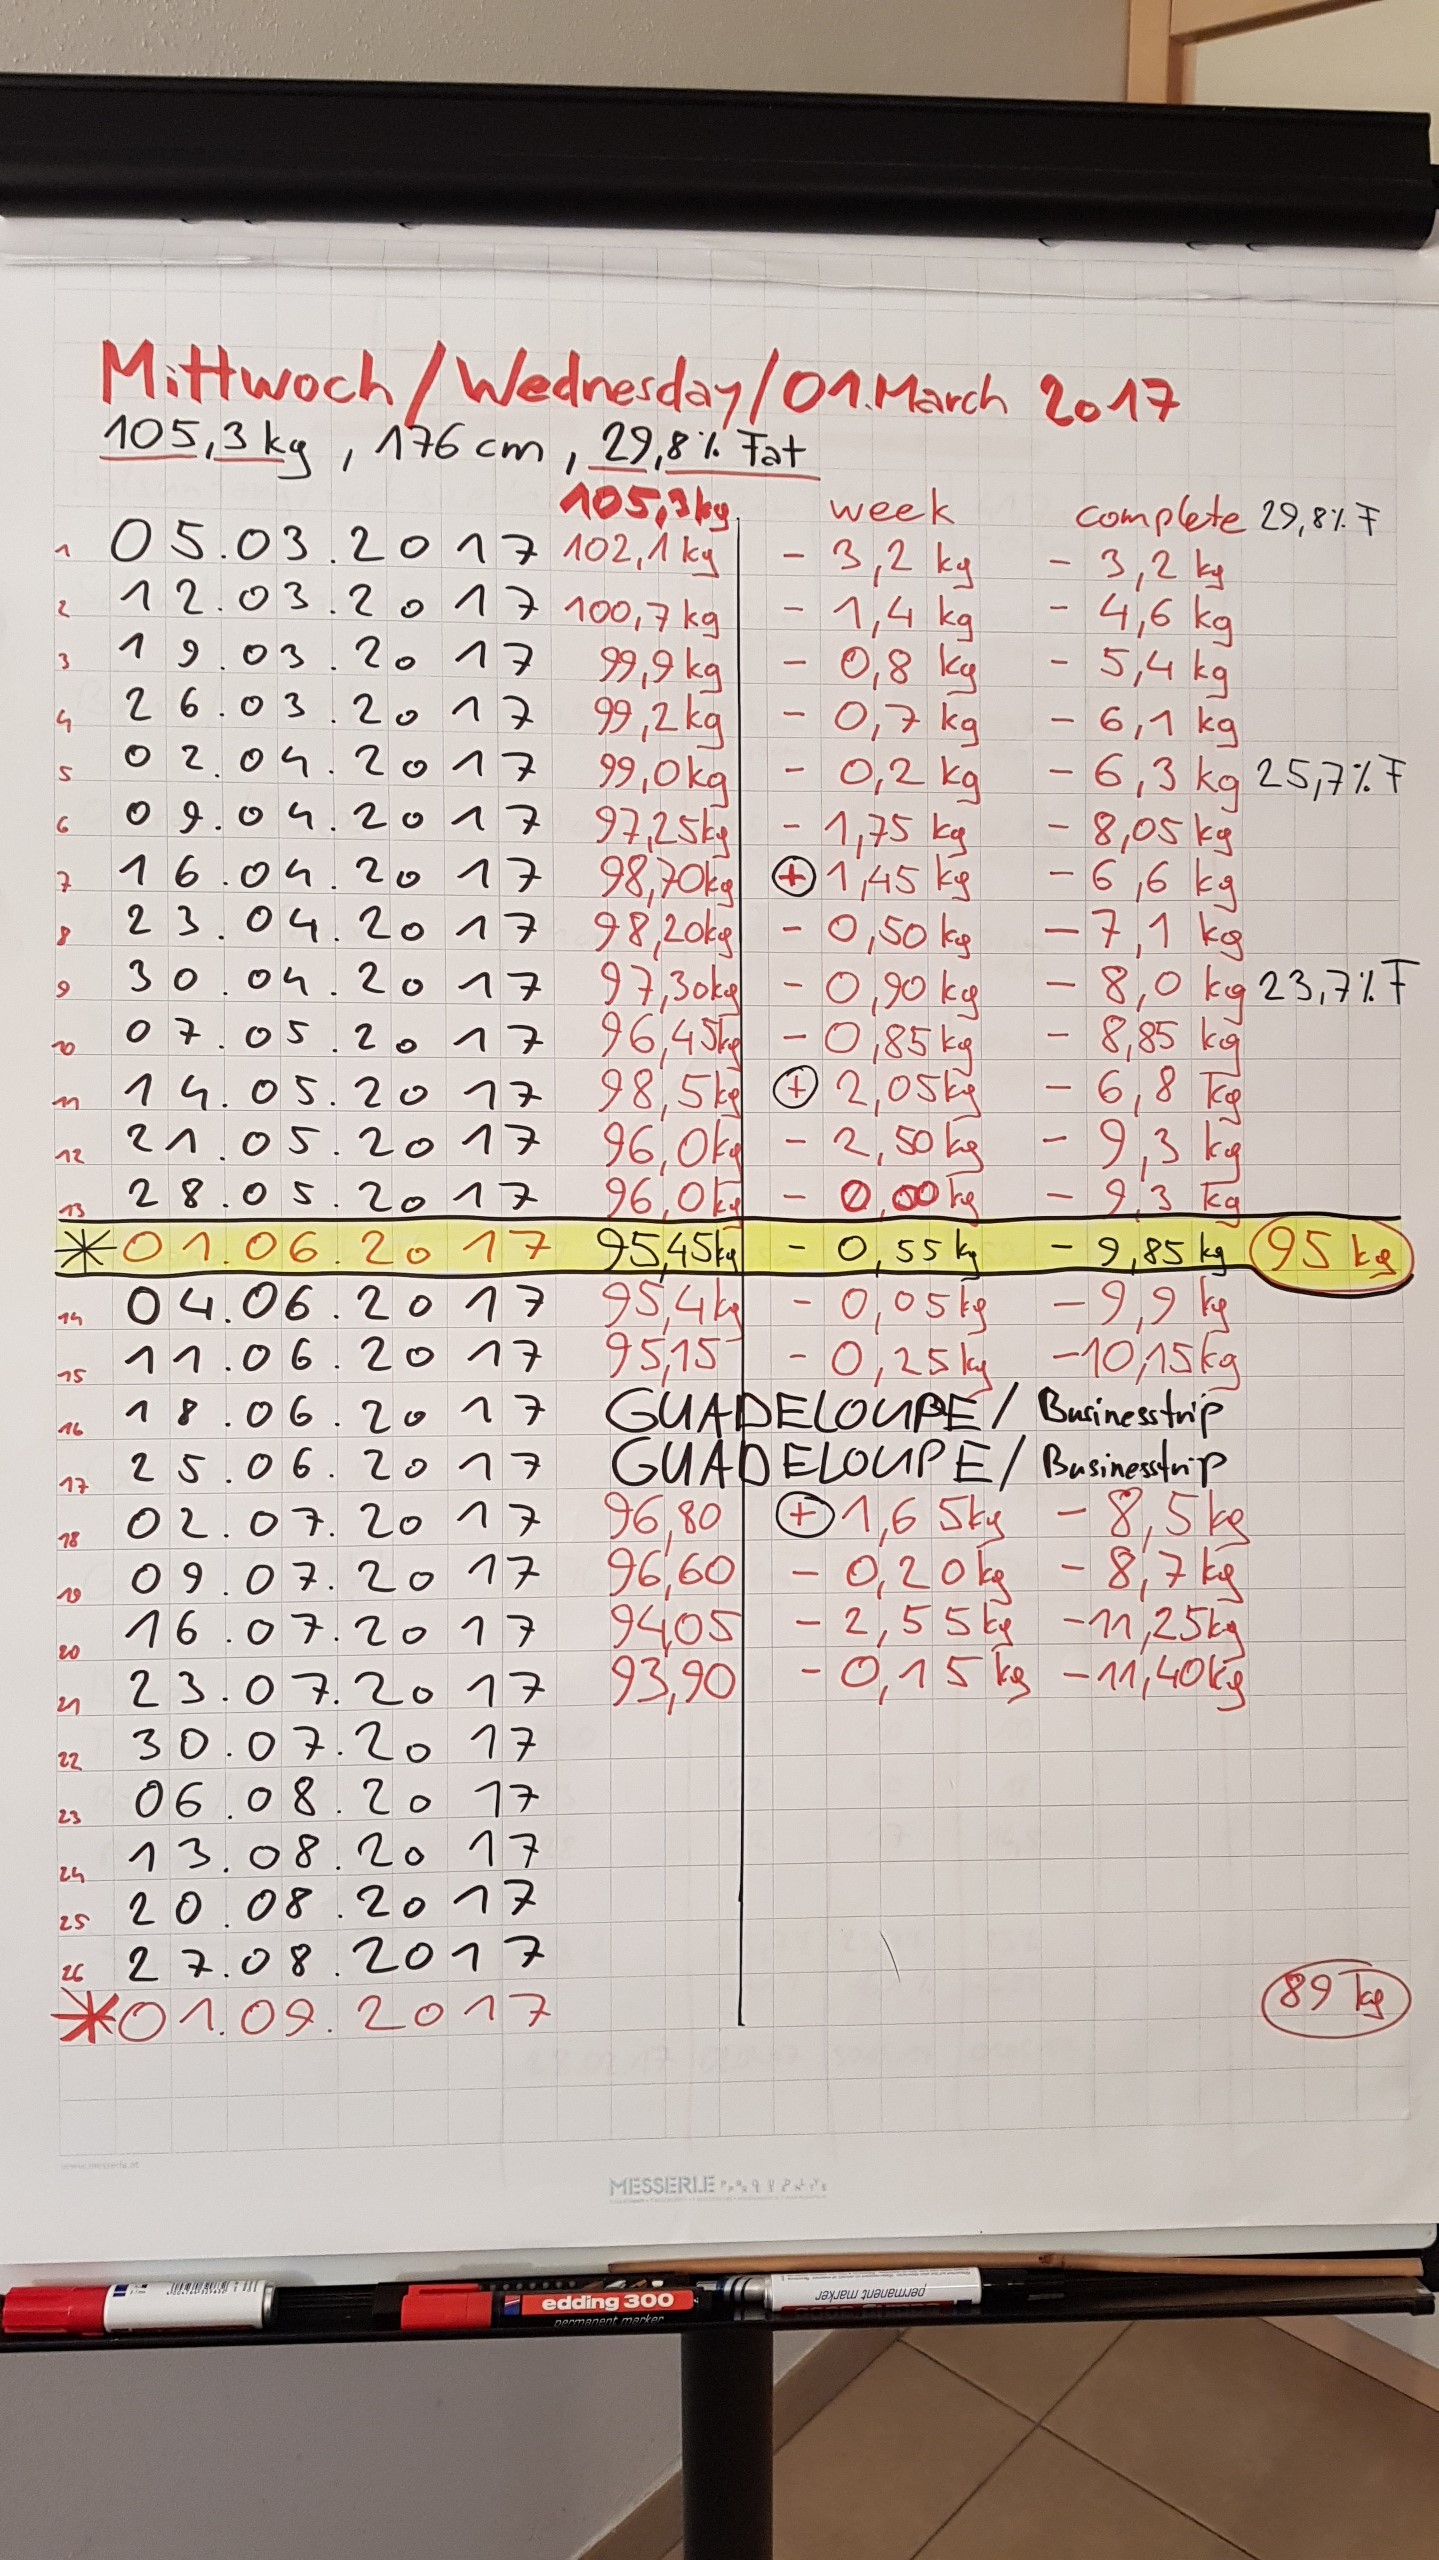 Mittwoch/Wednesday/01.March 2017
105,3kg, 176cm, 29,8% Fat
105,3kg week complete 29,8% F
1 05.03.2017 102,1kg - 3,2 kg - 3,2 kg
2 12.03.2017 100,7kg - 1,4 kg - 4,6 kg
3 19.03.2017 99,9kg - 0,8 kg - 5,4 kg
4 26.03.2017 99,2kg - 0,7 kg - 6,1 kg
5 02.04.2017 99,0kg - 0,2 kg - 6,3 kg 25,7% F
6 09.04.2017 97,25kg - 1,75 kg - 8,05 kg
7 16.04.2017 98,70kg + 1,45 kg - 6,6 kg
8 23.04.2017 98,20kg - 0,50 kg - 7,1 kg
9 30.04.2017 97,30kg - 0,90 kg - 8,0 kg 23,7% F
10 07.05.2017 96,45kg - 0,85kg - 8,85 kg
11 14.05.2017 98,5kg + 2,05kg - 6,8 kg
12 21.05.2017 96,0kg - 2,50kg - 9,3 kg
13 28.05.2017 96,0kg - 0,00kg - 9,3 kg
* 01.06.2017 95,45kg - 0,55kg - 9,85kg 95 kg
14 04.06.2017 95,4kg - 0,05kg - 9,9 kg
15 11.06.2017 95,15 - 0,25kg - 10,15kg
16 18.06.2017 GUADELOUPE/ Businesstrip
17 25.06.2017 GUADELOUPE/ Businesstrip
18 02.07.2017 96,80 + 1,65kg - 8,5kg
19 09.07.2017 96,60 - 0,20kg - 8,7kg
20 16.07.2017 94,05 - 2,55kg - 11,25kg
21 23.07.2017 93,90 - 0,15 kg - 11,40kg
22 30.07.2017
23 06.08.2017
24 13.08.2017
25 20.08.2017
26 27.08.2017
* 01.09.2017 89 kg
MESSERLE
edding 300
permanent marker
permanent marker